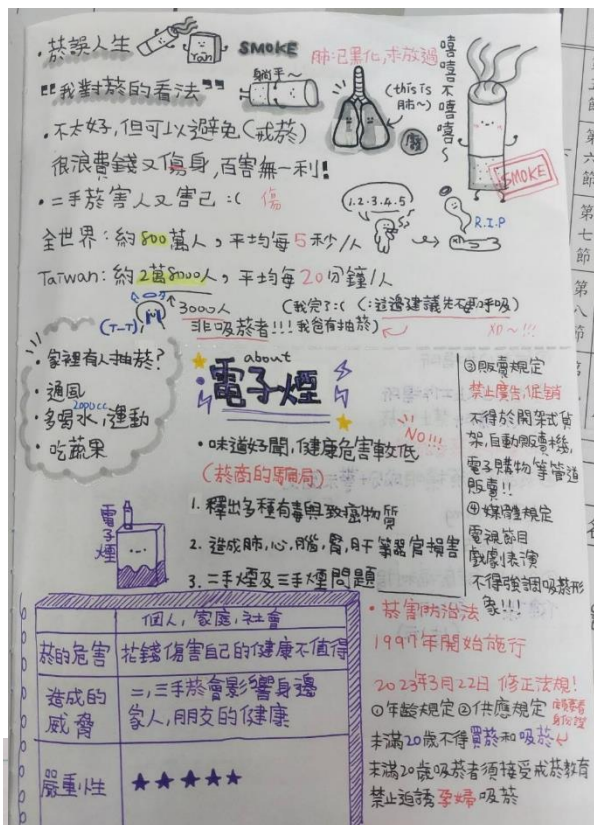 ・菸誤人生
Yan
SMOKE
"我對菸的看法"
躺平~
肺:已黑化,求放過
(this is 肺~)
廢
嘻嘻不嘻嘻~
SMOKE
・不太好,但可以避免(戒菸)
很浪費錢又傷身,百害無一利!
・二手菸害人又害己 :( 傷
1.2.3.4.5
R.I.P
全世界:約800萬人,平均每5秒/人
Taiwan:約2萬8000人,平均每20分鐘/人
(T-T)
3000人
非吸菸者!!!
(我完了:( (:這邊建議先不要呼吸)
我爸有抽菸)
XD~!!!
・家裡有人抽菸?
・通風
・多喝水,運動
2000cc
・吃蔬果
about
電子煙
・味道好聞,健康危害較低
No!!!
(菸商的騙局)
1. 釋出多種有毒與致癌物質
2. 造成肺,心,腦,腎,肝等器官損害
3. 二手煙及三手煙問題
電子煙
③販賣規定
禁止廣告,促銷
不得於開架式貨
架,自動販賣機,
電子購物等管道
販賣!!
④媒體規定
電視節目
戲劇表演
不得強調吸菸形
象!!!
個人,家庭,社會
菸的危害
花錢傷害自己的健康不值得
造成的
威脅
二,三手菸會影響身邊
家人,朋友的健康
嚴重性
★★★★★
・菸害防治法
1997年開始施行
2023年3月22日 修正法規!
①年齡規定②供應規定
未滿20歲不得買菸和吸菸
未滿20歲吸菸者須接受戒菸教育
禁止迫誘孕婦吸菸
第六節
第七節